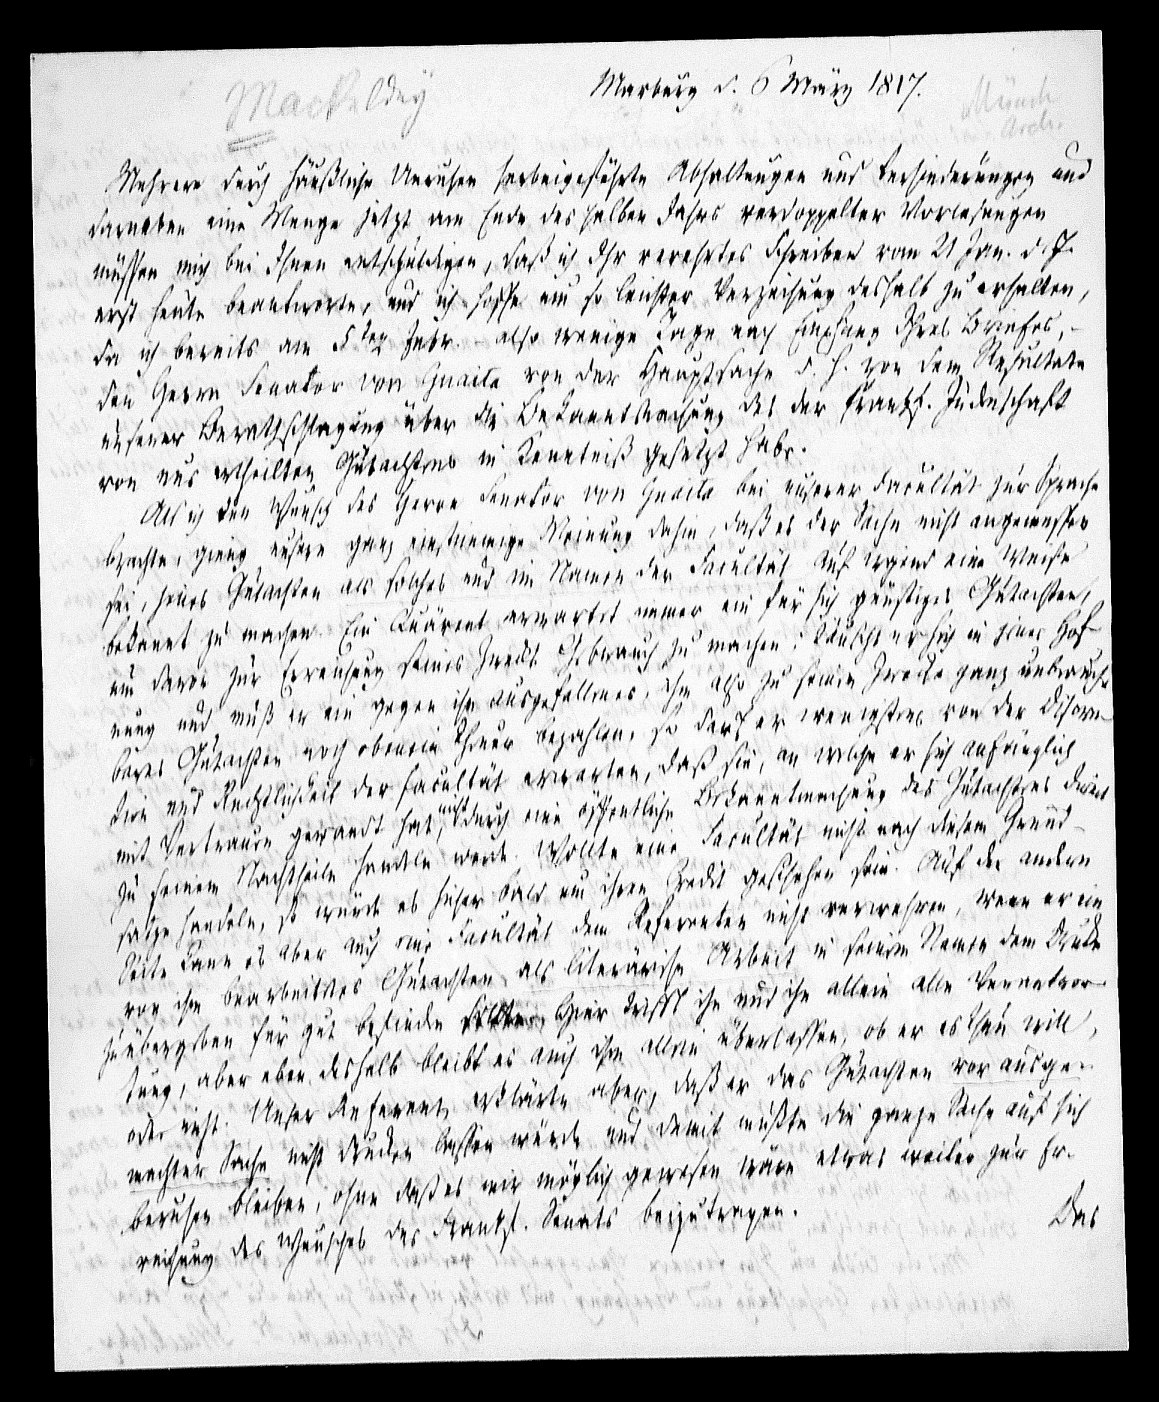 Mackeldey
Marburg d. 6 März 1817.
Münch
Arch.
Mehrere durch häußliche Unruhen herbeigeführte Abhaltungen und Verhinderungen und
darneben eine Menge jetzt am Ende des halben Jahrs verdoppelter Vorlesungen
müssen mich bei Ihnen entschuldigen, daß ich Ihr verehrtes Schreiben vom 21 Jan. d. J.
erst heute beantworte, und ich hoffe um so leichter Verzeihung deshalb zu erhalten,
da ich bereits am 5ten Febr. – also wenige Tage nach Empfang Ihres Briefes, –
den Herrn Senator von Guaita von der Hauptsache d. h. von dem Resultate
unserer Berathschlagung über die Bekanntmachung des der Frankf. Judenschaft
von uns ertheilten Gutachtens in Kenntniß gesetzt habe.
Als ich den Wunsch des Herrn Senator von Guaita bei unserer Facultät zur Sprache
brachte, gieng unsere ganz einstimmige Meinung dahin, daß es der Sache nicht angemessen
sei, jenes Gutachten als solches und im Namen der Facultät auf irgend eine Weise
bekannt zu machen. Ein Quärent erwartet immer ein für sich günstiges Gutachten,
um davon zur Erreichung seines Zwecks Gebrauch zu machen; täuscht er sich in seiner Hof-
nung und muß er ein gegen ihn ausgefallenes, ihm also zu seinem Zwecke ganz unbrauch-
bares Gutachten noch obenein theuer bezahlen, so darf er wenigstens von der Discre-
tion und Rechtlichkeit der Facultät erwarten, daß sie, an welche er sich anfänglich
mit Vertrauen gewandt hat, nicht durch eine öffentliche Bekanntmachung des Gutachtens direct
zu seinem Nachtheile handeln werde. Wollte eine Facultät nicht nach diesem Grund-
satze handeln, so würde es sicher bald um ihren Credit geschehen sein. Auf der andern
Seite kann es aber auch eine Facultät dem Referenten nicht verwehren, wenn er ein
von ihm bearbeitetes Gutachten als literärische Arbeit in seinem Namen dem Drucke
zu übergeben für gut befinden sollte. Hier trifft ihn und ihn allein alle Verantwor-
tung, aber eben deshalb bleibt es auch ihm allein überlassen, ob er es thun will,
oder nicht. Unser Referent erklärte aber, daß er das Gutachten vor ausge-
machter Sache nicht drucken lassen würde und damit mußte die ganze Sache auf sich
beruhen bleiben, ohne daß es mir möglich gewesen wäre etwas weiter zur Er-
reichung des Wunsches des Frankf. Senats beizutragen.
Das